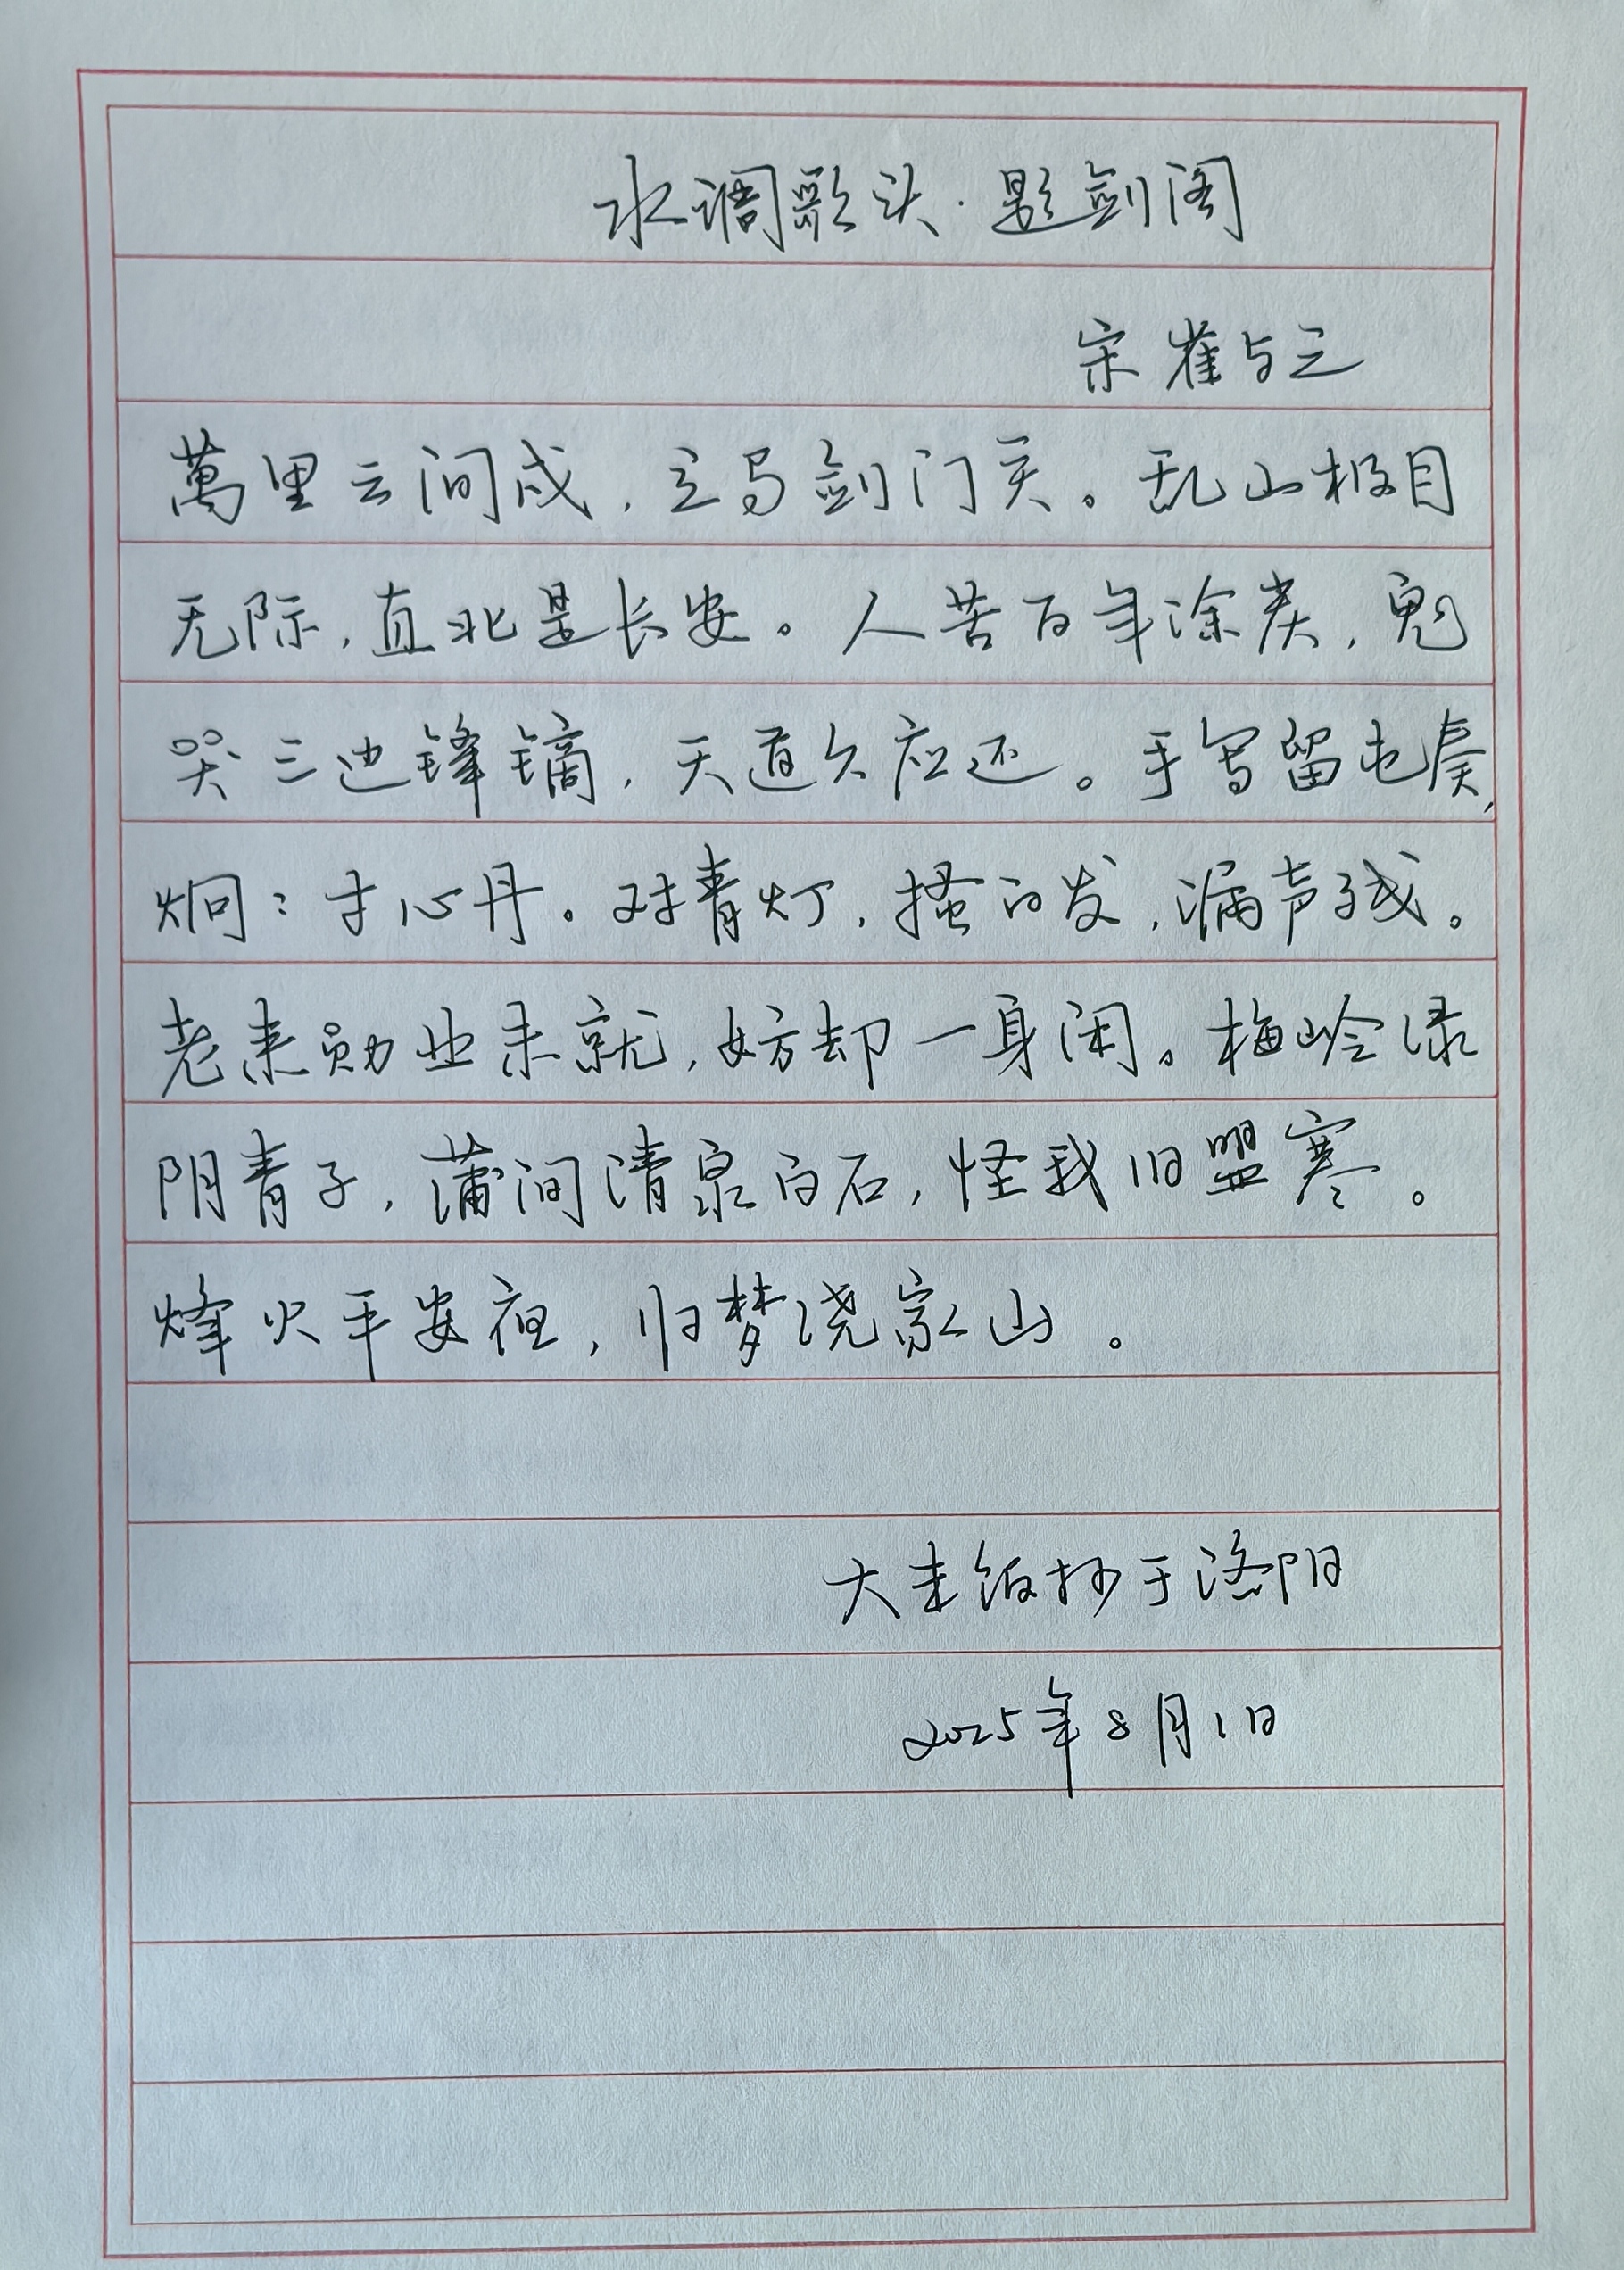 水调歌头·题剑阁
宋 崔与之
萬里云间戍，立马剑门关。乱山极目
无际，直北是长安。人苦百年涂炭，鬼
哭三边锋镝，天道久应还。手写留屯奏，
炯：寸心丹。对青灯，搔白发，漏声残。
老来勋业未就，妨却一身闲。梅岭绿
阴青子，蒲涧清泉白石，怪我旧盟寒。
烽火平安夜，归梦绕家山。
大来 抄于洛阳
2025年8月1日